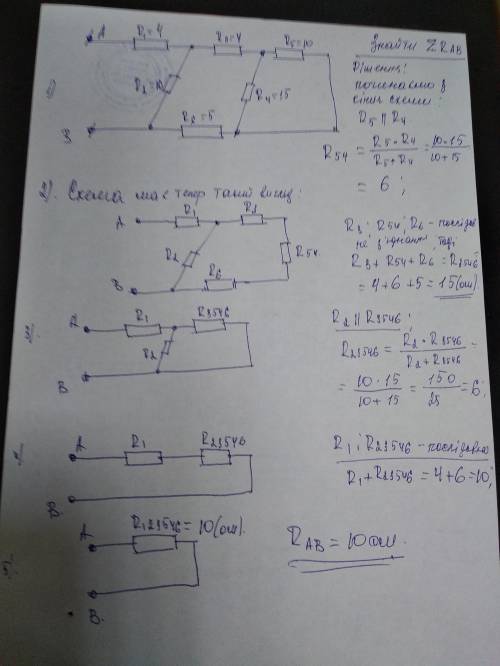 A R1=4 R3=4 R5=10
R2=10 R4=15
1)
B R6=5
Знайти ΣRAB
Рішення:
починаємо з
кінця схеми:
R5 || R4
R54 = R5·R4 / R5+R4 = 10·15 / 10+15
= 6;
2) Схема має тепер такий вигляд:
A R1 R3
R2 R54
B R6
R3; R54; R6 - послідов
не з'єднані, тоді
R3+R54+R6 = R3546
= 4+6+5 = 15(ом).
3)
A R1 R3546
R2
B
R2 || R3546;
R23546 = R2·R3546 / R2+R3546 =
= 10·15 / 10+15 = 150 / 25 = 6;
A R1 R23546
B
R1 i R23546 - послідовно
R1+R23546 = 4+6=10;
5)
A R123546 = 10(ом).
B.
RAB = 10 ом.